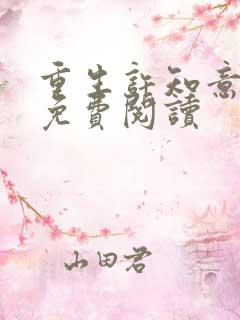 重生許知意
免費閱讀
山田君